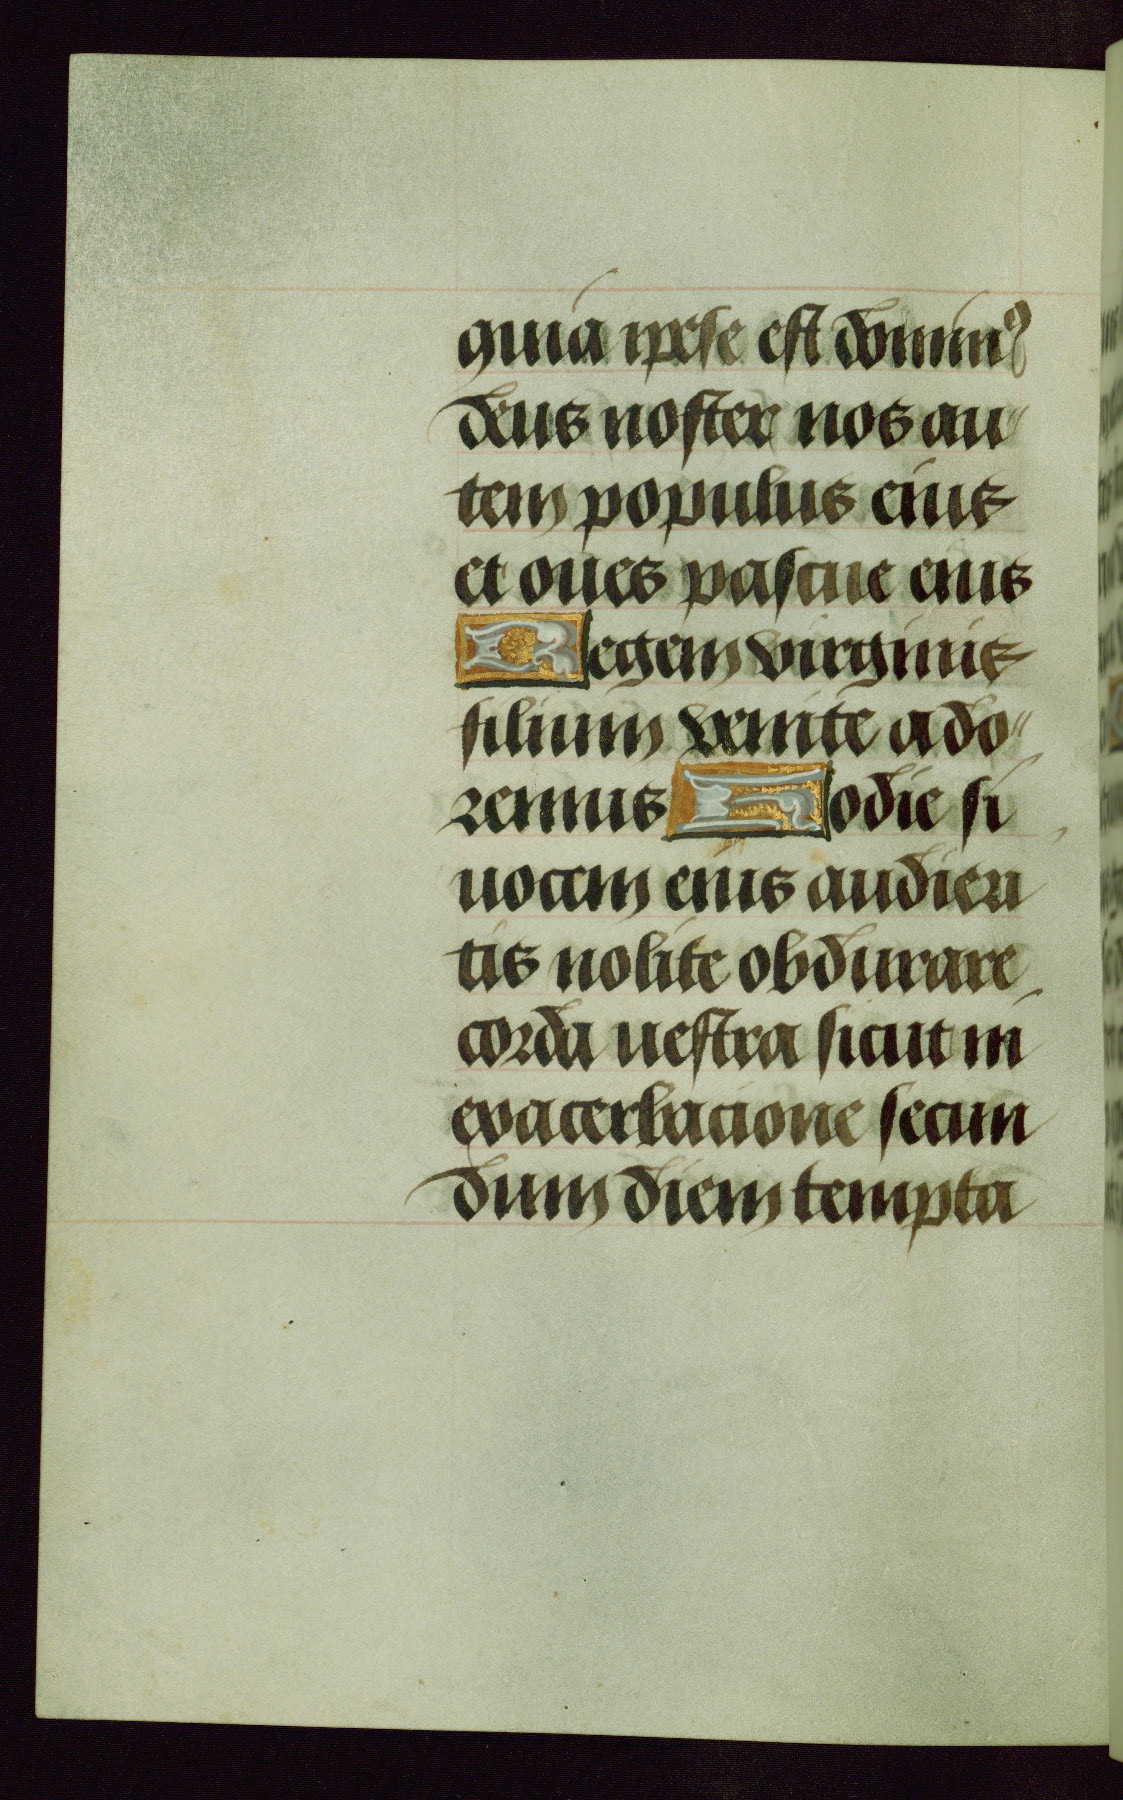 quia ipse est dominꝰ
deus noster nos au
tem populus eius
et oues pascue eius
Regem virginis
filium venite ado
remus Hodie si
uocem eius audieri
tis nolite obdurare
corda uestra sicut in
exacerbacione secun
dum diem tempta